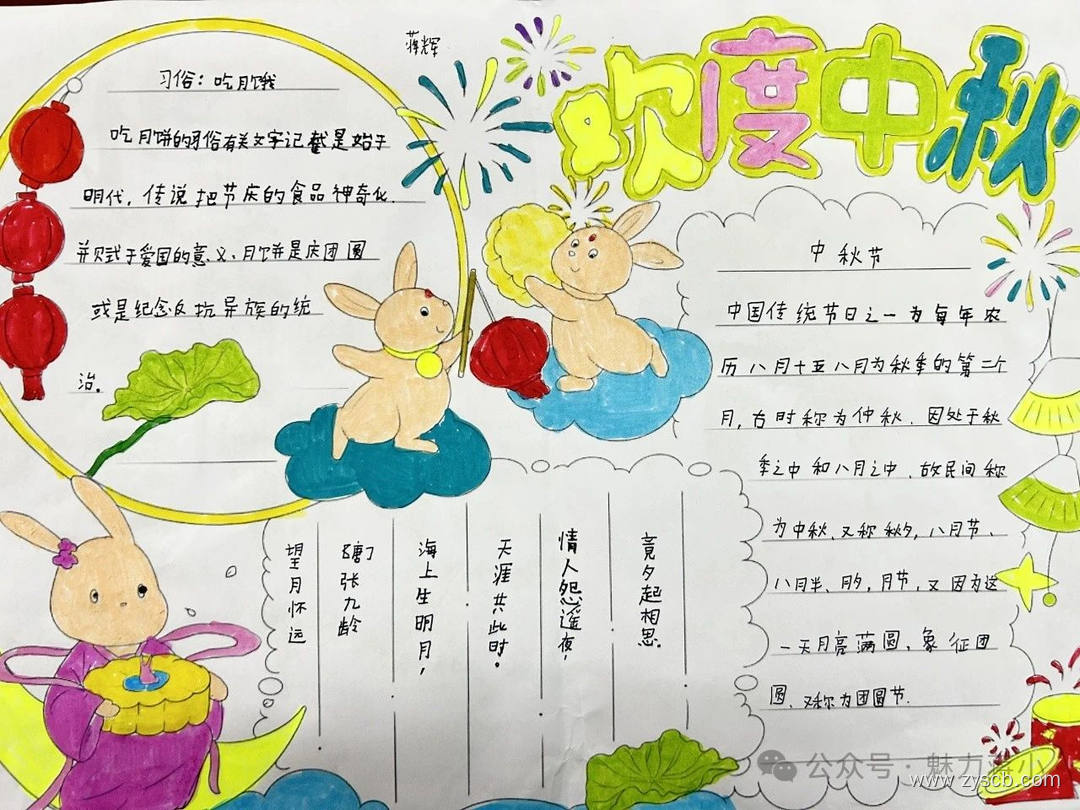 蒋辉
欢度中秋
习俗：吃月饿
吃月饼的习俗有关文字记截是始于
明代，传说把节庆的食品神奇化.
并贝式于爱国的意义、月饼是庆团圆
或是纪念反抗异族的统
治。
中秋节
中国传统节日之一为每年农
历八月十五八月为秋季的第二个
月，古时称为仲秋.因处于秋
季之中和八月之中、故民间称
为中秋、又称秋夕，八月节、
八月半、月夕，月节，又因为这
一天月亮满圆、象征团
圆、又称为团圆节.
望月怀远
[唐]张九龄
海上生明月，
天涯共此时。
情人怨遥夜，
竟夕起相思.
公众号·魅力
小
www.zyscb.com